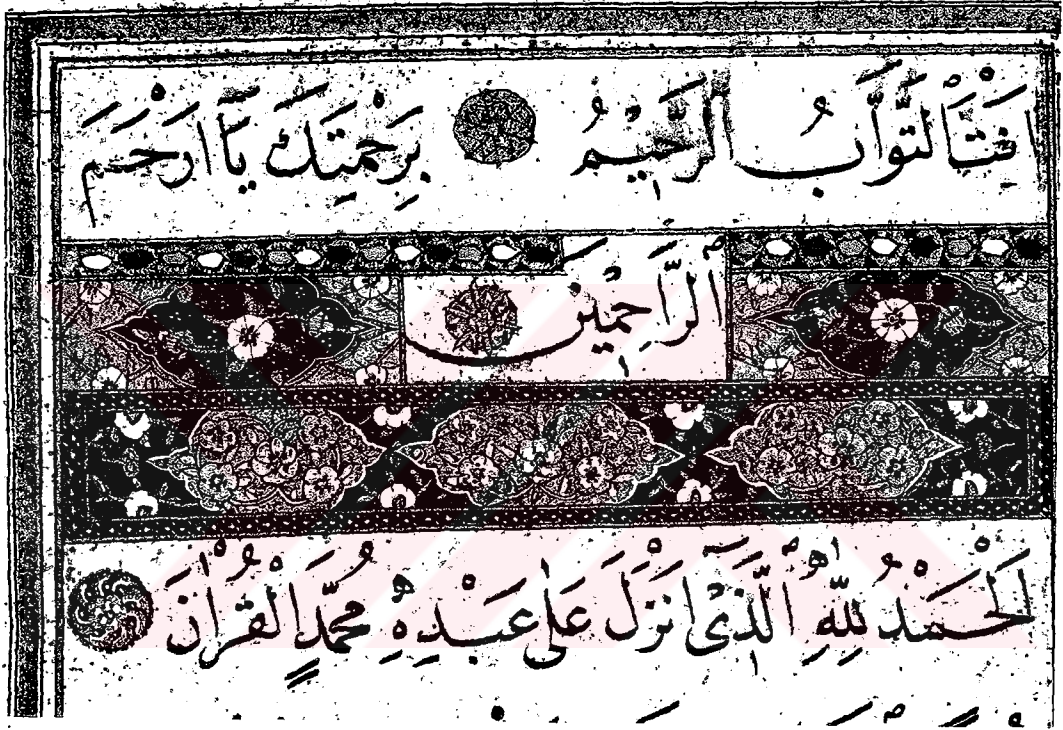 اَنْتَ التَّوَّابُ الرَّحِيمُ بِرَحْمَتِكَ يَآ اَرْحَمَ
الرَّاحِمِينَ
اَلْحَمْدُ لِلّٰهِ الَّذِى اَنْزَلَ عَلٰى عَبْدِهِ مُحَمَّدٍ الْقُرْاٰنَ